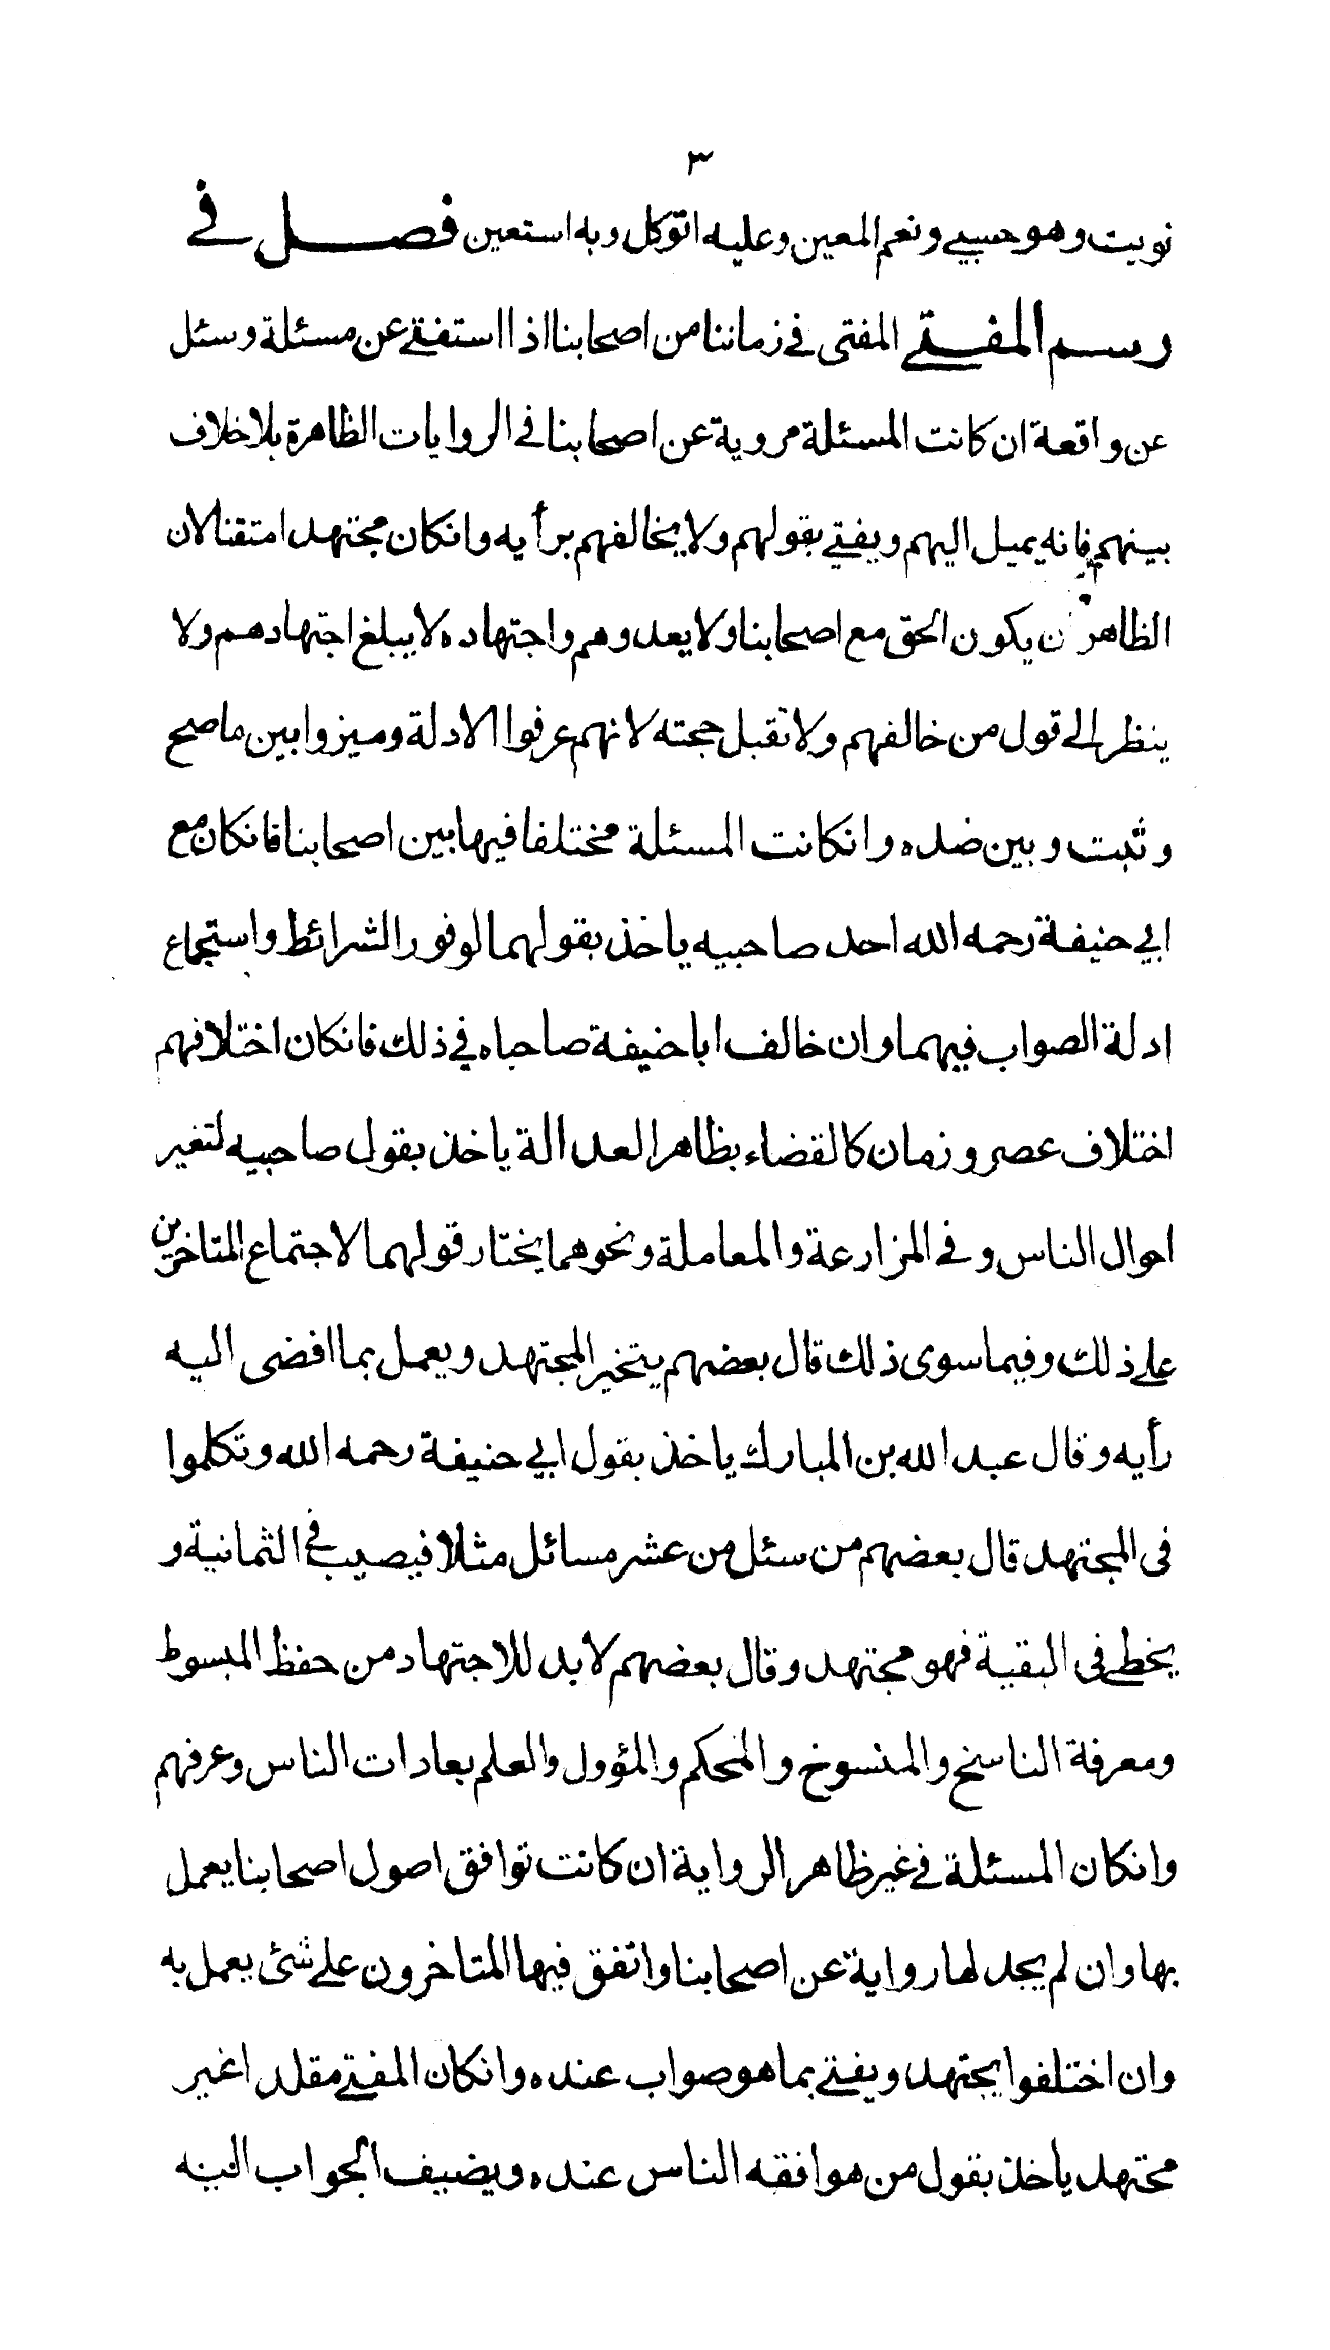 ٣
نويت وهو حسبي ونعم المعين وعليه اتوكل وبه استعين فصل في
رسم المفتي المفتى في زماننا من اصحابنا اذا استفتي عن مسئلة وسئل
عن واقعة ان كانت المسئلة مروية عن اصحابنا في الروايات الظاهرة بلا خلاف
بينهم فانه يميل اليهم ويفتي بقولهم ولا يخالفهم برأيه وانكان مجتهدا متقنا لان
الظاهر ان يكون الحق مع اصحابنا ولا يعدوهم واجتهاده لا يبلغ اجتهادهم ولا
ينظر الى قول من خالفهم ولا تقبل حجته لانهم عرفوا الادلة وميزوا بين ما صح
وثبت وبين ضده وانكانت المسئلة مختلفا فيها بين اصحابنا فانكان مع
ابي حنيفة رحمه الله احد صاحبيه ياخذ بقولهما لوفور الشرائط واستجماع
ادلة الصواب فيهما وان خالف ابا حنيفة صاحباه في ذلك فانكان اختلافهم
اختلاف عصر وزمان كالقضاء بظاهر العدالة ياخذ بقول صاحبيه لتغير
احوال الناس وفي المزارعة والمعاملة ونحوهما يختار قولهما لاجتماع المتاخرين
على ذلك وفيما سوى ذلك قال بعضهم يتخير المجتهد ويعمل بما افضى اليه
رأيه وقال عبد الله بن المبارك ياخذ بقول ابي حنيفة رحمه الله وتكلموا
فى المجتهد قال بعضهم من سئل من عشر مسائل مثلا فيصيب في الثمانية و
يخطي فى البقية فهو مجتهد وقال بعضهم لا بد للاجتهاد من حفظ المبسوط
ومعرفة الناسخ والمنسوخ والمحكم والمؤول والعلم بعادات الناس وعرفهم
وانكان المسئلة في غير ظاهر الرواية ان كانت توافق اصول اصحابنا يعمل
بها وان لم يجد لها رواية عن اصحابنا واتفق فيها المتاخرون على شئ يعمل به
وان اختلفوا يجتهد ويفتي بما هو صواب عنده وانكان المفتي مقلدا غير
مجتهد ياخذ بقول من هو افقه الناس عنده ويضيف الجواب اليه